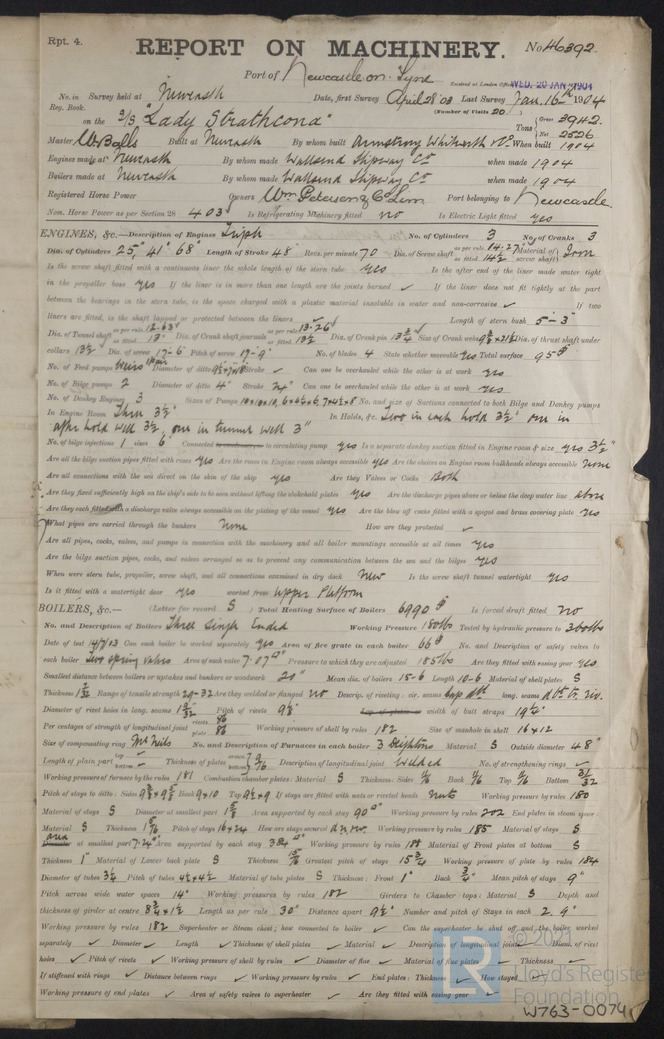 Rpt. 4.
REPORT ON MACHINERY.
No. 46392.
Port of Newcastle on Tyne
Received at London Office WED. 20 JAN 1904
No. in Survey held at Newcastle Date, first Survey April 28 03 Last Survey Jan. 16th 1904
Reg. Book. (Number of Visits 20)
on the S/S "Lady Strathcona" Tons Gross 3942. Net 2526
Master W. Balls Built at Newcastle By whom built Armstrong Whitworth & Co When built 1904
Engines made at Newcastle By whom made Wallsend Slipway Co when made 1904
Boilers made at Newcastle By whom made Wallsend Slipway Co when made 1904
Registered Horse Power Owners Wm Petersen & Co Lim Port belonging to Newcastle
Nom. Horse Power as per Section 28 403 Is Refrigerating Machinery fitted no Is Electric Light fitted yes
ENGINES, &c.—Description of Engines Triple No. of Cylinders 3 No. of Cranks 3
Dia. of Cylinders 25" 41" 68" Length of Stroke 48" Revs. per minute 70 Dia. of Screw shaft as per rule 14.27 as fitted 14½ Material of screw shaft Iron
Is the screw shaft fitted with a continuous liner the whole length of the stern tube yes Is the after end of the liner made water tight
in the propeller boss yes If the liner is in more than one length are the joints burned ✓ If the liner does not fit tightly at the part
between the bearings in the stern tube, is the space charged with a plastic material insoluble in water and non-corrosive ✓ If two
liners are fitted, is the shaft lapped or protected between the liners Length of stern bush 5-3"
Dia. of Tunnel shaft as per rule 12.63 as fitted 13" Dia. of Crank shaft journals as per rule 13.26 as fitted 13½ Dia. of Crank pin 13¾ Size of Crank webs Dia. of thrust shaft under
collars 13½ Dia. of screw 17-6 Pitch of screw 17-9 No. of blades 4 State whether moveable yes Total surface 95
No. of Feed pumps Weirs Diameter of ditto Stroke ✓ Can one be overhauled while the other is at work yes
No. of Bilge pumps 2 Diameter of ditto 4" Stroke 24" Can one be overhauled while the other is at work yes
No. of Donkey Engines 3 Sizes of Pumps No. and size of Suctions connected to both Bilge and Donkey pumps
In Engine Room Three 3½" In Holds, &c. Two in each hold 3½" one in
after hold well 3½, one in tunnel well 3"
No. of bilge injections 1 sizes 6" Connected to circulating pump yes Is a separate donkey suction fitted in Engine room & size yes 3½"
Are all the bilge suction pipes fitted with roses yes Are the roses in Engine room always accessible yes Are the sluices on Engine room bulkheads always accessible none
Are all connections with the sea direct on the skin of the ship yes Are they Valves or Cocks Both
Are they fixed sufficiently high on the ship's side to be seen without lifting the stokehold plates yes Are the discharge pipes above or below the deep water line above
Are they each fitted with a discharge valve always accessible on the plating of the vessel yes Are the blow off cocks fitted with a spigot and brass covering plate yes
What pipes are carried through the bunkers None How are they protected ✓
Are all pipes, cocks, valves, and pumps in connection with the machinery and all boiler mountings accessible at all times yes
Are the bilge suction pipes, cocks, and valves arranged so as to prevent any communication between the sea and the bilges yes
When were stern tube, propeller, screw shaft, and all connections examined in dry dock New Is the screw shaft tunnel watertight yes
Is it fitted with a watertight door yes worked from upper Platform
BOILERS, &c.— (Letter for record S) Total Heating Surface of Boilers 6990 Is forced draft fitted no
No. and Description of Boilers Three Single Ended Working Pressure 180 lbs Tested by hydraulic pressure to 360 lbs
Date of test Can each boiler be worked separately yes Area of fire grate in each boiler 66 No. and Description of safety valves to
each boiler Two spring valves Area of each valve 7.07 Pressure to which they are adjusted 185 lbs Are they fitted with easing gear yes
Smallest distance between boilers or uptakes and bunkers or woodwork 20" Mean dia. of boilers 15-6 Length 10-6 Material of shell plates S
Thickness Range of tensile strength 29-32 Are they welded or flanged no Descrip. of riveting: cir. seams lap long. seams
Diameter of rivet holes in long. seams Pitch of rivets width of butt straps 19¼
Per centages of strength of longitudinal joint rivets 86 plate 86 Working pressure of shell by rules 182 Size of manhole in shell 16x12
Size of compensating ring McNeils No. and Description of Furnaces in each boiler 3 Deightons Material S Outside diameter 48"
Length of plain part top bottom Thickness of plates crown bottom 9/16 Description of longitudinal joint Welded No. of strengthening rings ✓
Working pressure of furnace by the rules 181 Combustion chamber plates: Material S Thickness: Sides Back Top Bottom 31/32
Pitch of stays to ditto: Sides Back 9x10 Top If stays are fitted with nuts or riveted heads Nuts Working pressure by rules 180
Material of stays S Diameter at smallest part Area supported by each stay 90 Working pressure by rules 202 End plates in steam space:
Material S Thickness Pitch of stays 16x24 How are stays secured Working pressure by rules 185 Material of stays S
area at smallest part 7.24 Area supported by each stay 384 Working pressure by rules Material of Front plates at bottom S
Thickness 1" Material of Lower back plate S Thickness Greatest pitch of stays 15¾ Working pressure of plate by rules 184
Diameter of tubes 3¼ Pitch of tubes 4½x4½ Material of tube plates S Thickness: Front 1" Back ¾ Mean pitch of stays 9"
Pitch across wide water spaces 14" Working pressures by rules 182 Girders to Chamber tops: Material S Depth and
thickness of girder at centre Length as per rule 30" Distance apart 9½" Number and pitch of Stays in each 2. 9"
Working pressure by rules 182 Superheater or Steam chest; how connected to boiler ✓ Can the superheater be shut off and the boiler worked
separately ✓ Diameter ✓ Length ✓ Thickness of shell plates ✓ Material ✓ Description of longitudinal joint Diam. of rivet
holes ✓ Pitch of rivets ✓ Working pressure of shell by rules ✓ Diameter of flue ✓ Material of flue plates ✓ Thickness ✓
If stiffened with rings ✓ Distance between rings ✓ Working pressure by rules ✓ End plates: Thickness ✓ How stayed
Working pressure of end plates ✓ Area of safety valves to superheater ✓ Are they fitted with easing gear ✓
LR © 2021
Lloyd's Register
Foundation
W763-0074